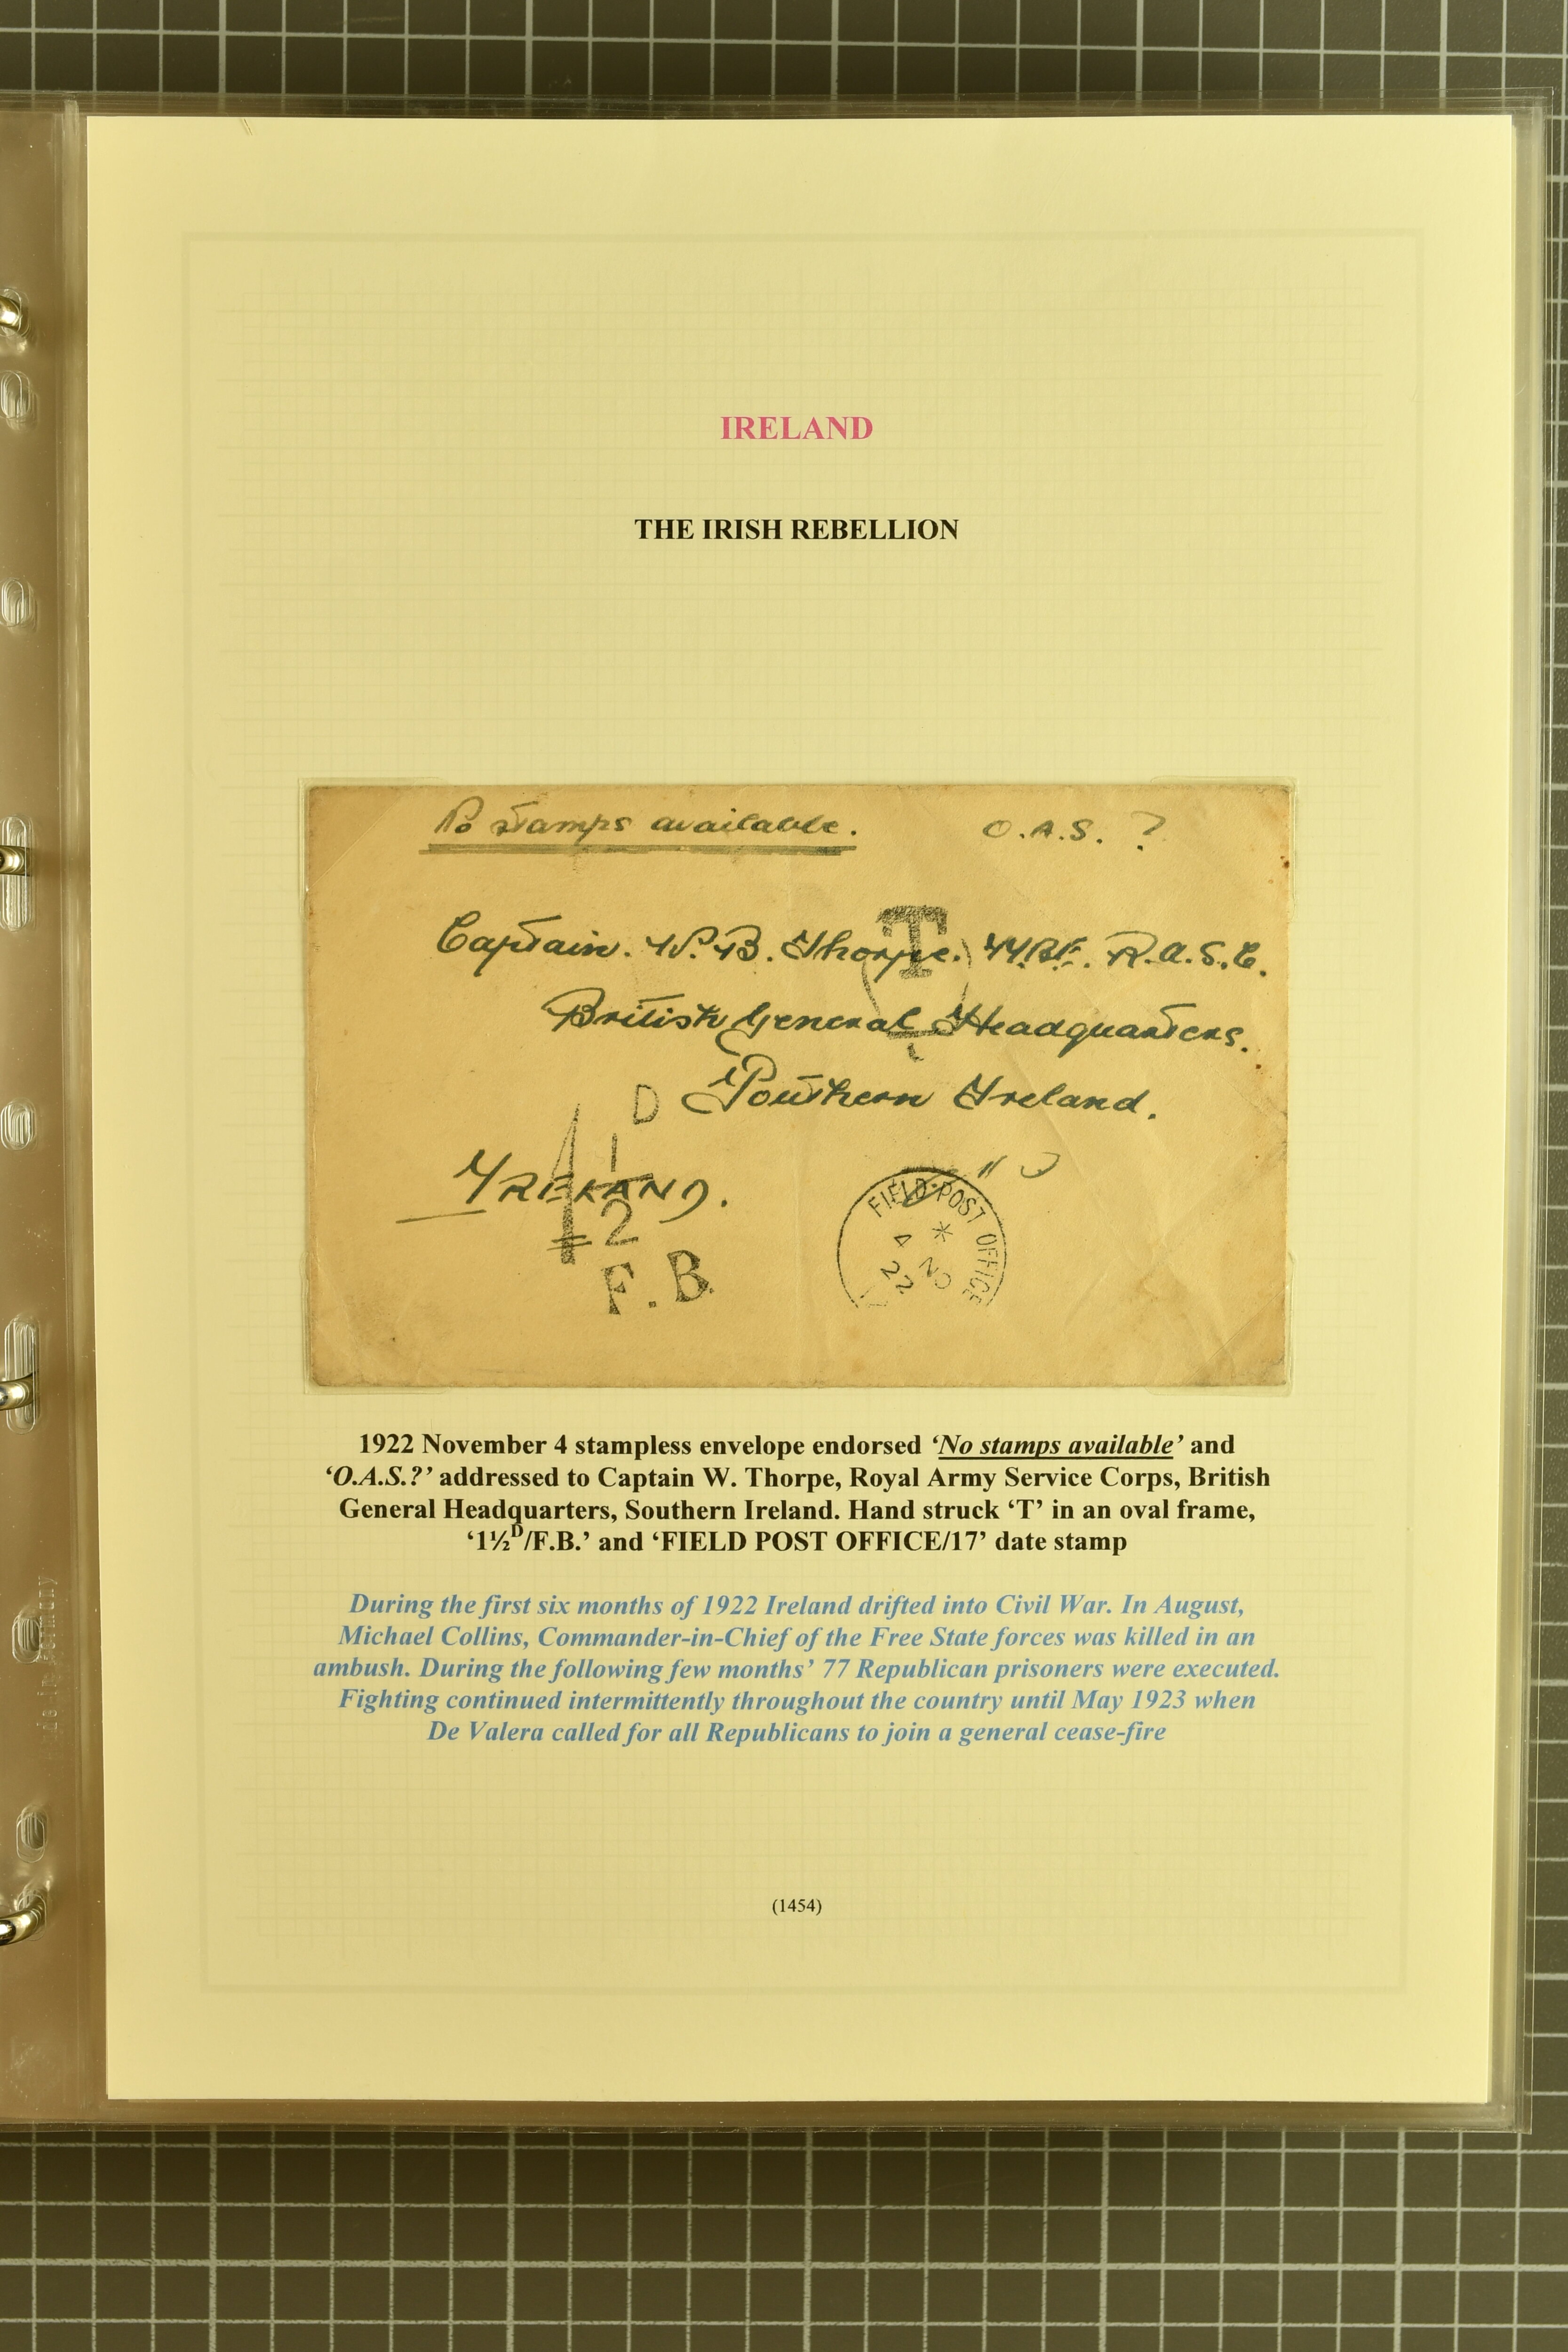 IRELAND
THE IRISH REBELLION
No stamps available.
O.A.S. ?
Captain. W. B. Thorpe. M.B.E. R.A.S.C.
T
British General Headquarters.
Southern Ireland.
IRELAND.
1 1/2 D
F.B.
FIELD POST OFFICE
4 NO
22
1922 November 4 stampless envelope endorsed ‘No stamps available’ and
‘O.A.S.?’ addressed to Captain W. Thorpe, Royal Army Service Corps, British
General Headquarters, Southern Ireland. Hand struck ‘T’ in an oval frame,
‘1½ᴰ/F.B.’ and ‘FIELD POST OFFICE/17’ date stamp
During the first six months of 1922 Ireland drifted into Civil War. In August,
Michael Collins, Commander-in-Chief of the Free State forces was killed in an
ambush. During the following few months’ 77 Republican prisoners were executed.
Fighting continued intermittently throughout the country until May 1923 when
De Valera called for all Republicans to join a general cease-fire
(1454)